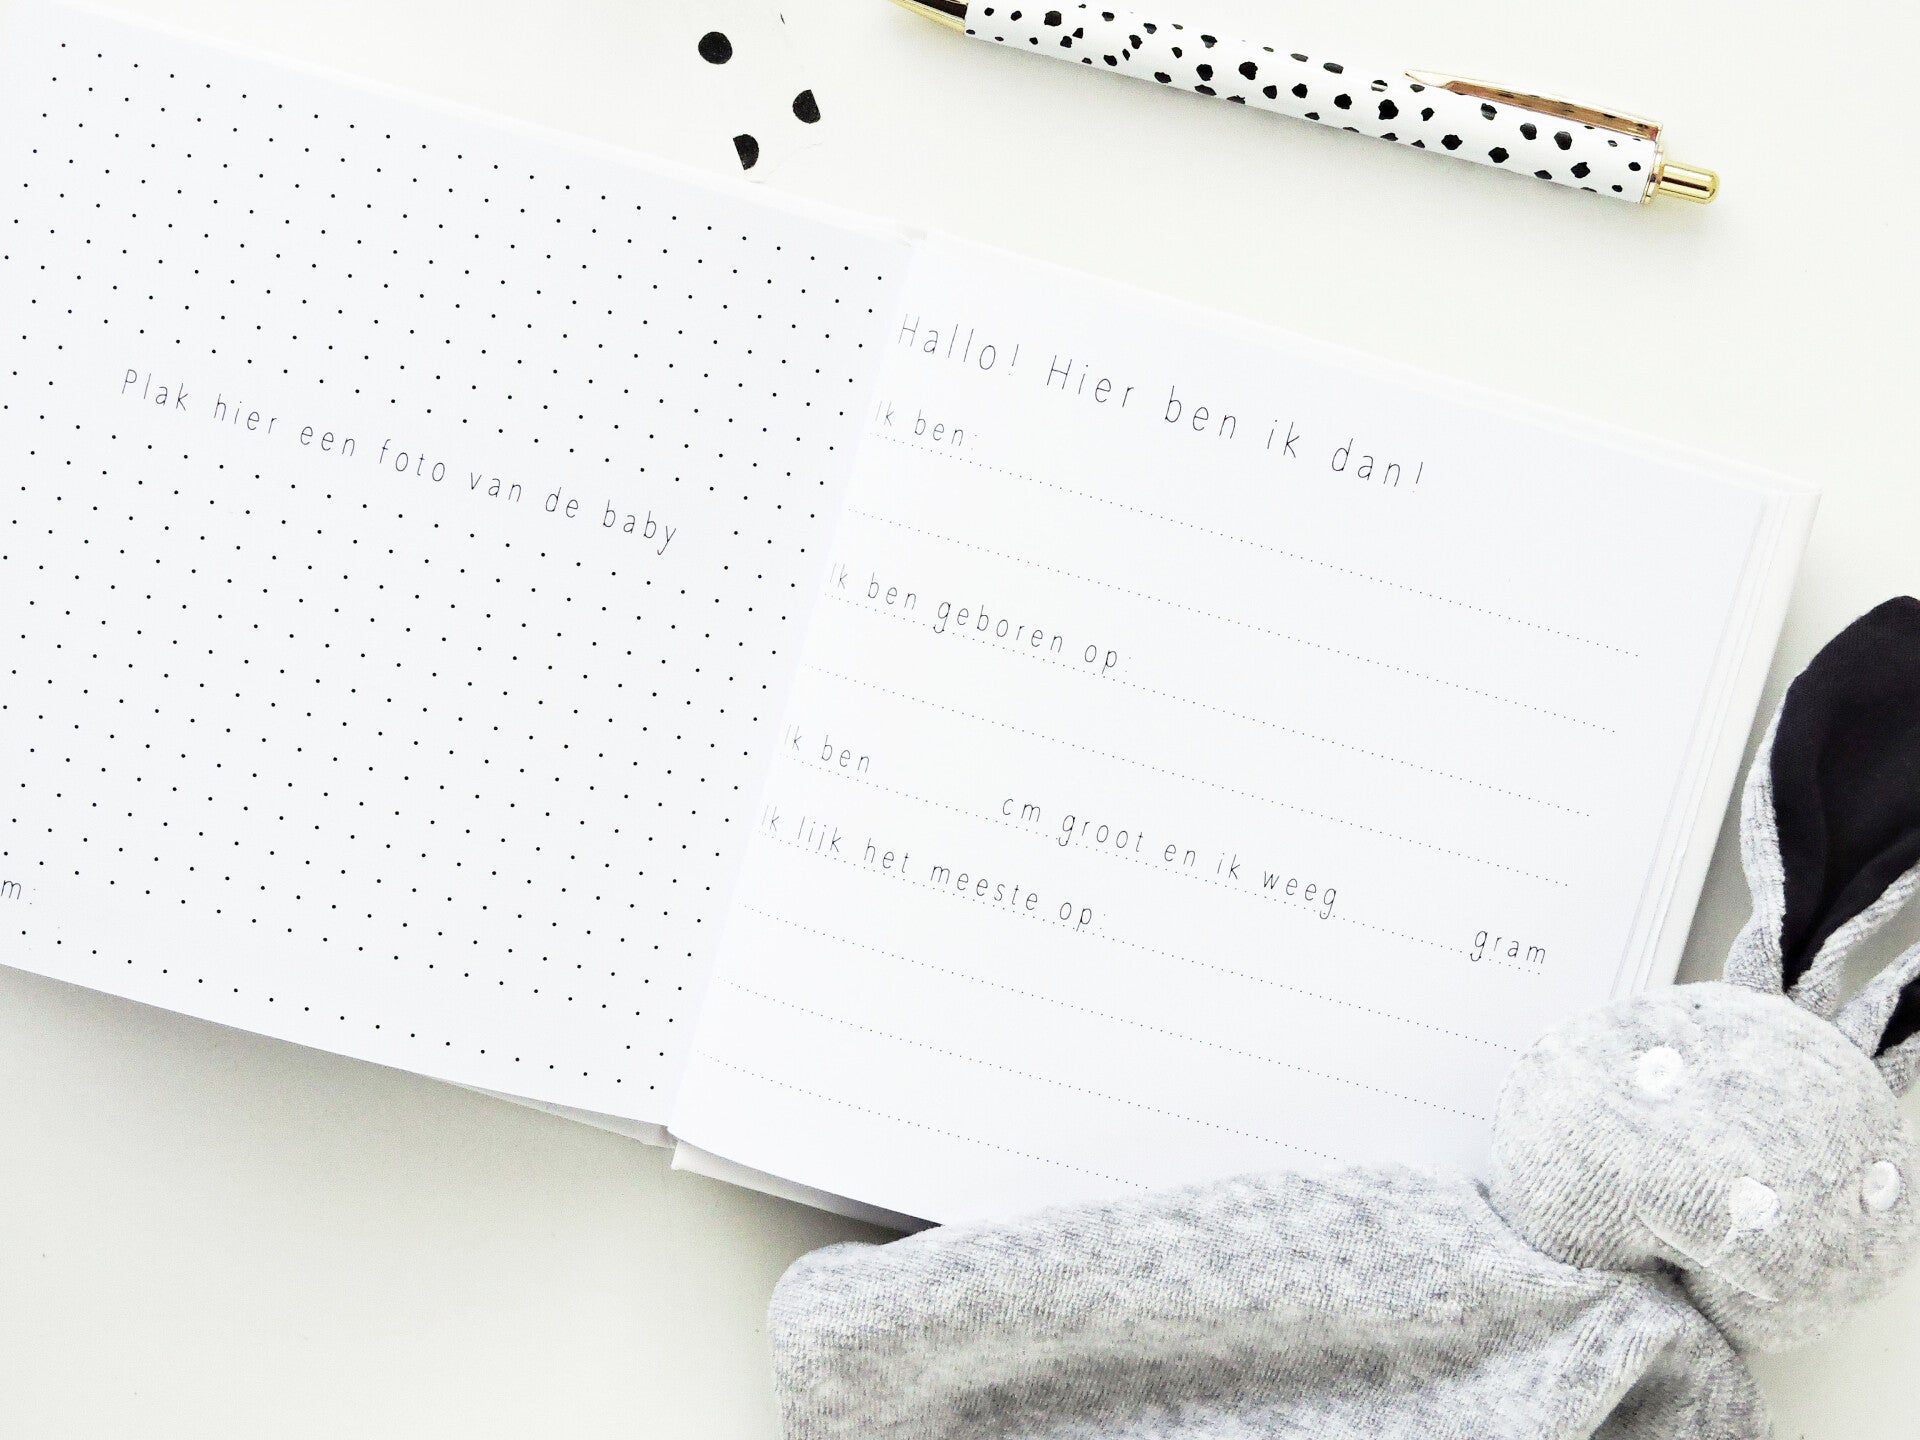 Plak hier een foto van de baby
m:
Hallo! Hier ben ik dan!
Ik ben:
Ik ben geboren op:
Ik ben cm groot en ik weeg gram
Ik lijk het meeste op: